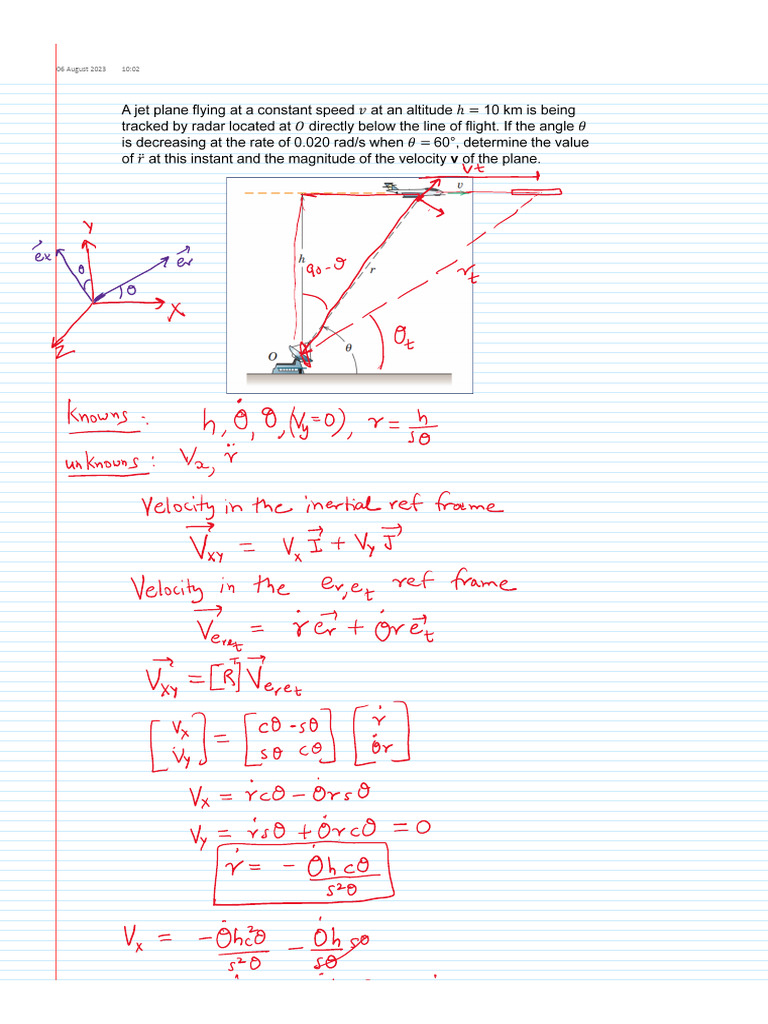 06 August 2023 10:02
A jet plane flying at a constant speed v at an altitude h = 10 km is being
tracked by radar located at O directly below the line of flight. If the angle θ
is decreasing at the rate of 0.020 rad/s when θ = 60°, determine the value
of r̈ at this instant and the magnitude of the velocity v of the plane.
vt
v
h
90-θ
r
r_t
θ_t
θ
O
Y
ex
er
θ
θ
X
Z
Knowns: h, θ̇, θ, (Vy=0), r = h/sθ
unknowns: Vx, r̈
Velocity in the inertial ref frame
V⃗xy = Vx I⃗ + Vy J⃗
Velocity in the er,et ref frame
V⃗eret = ṙ e⃗r + θ̇r e⃗t
V⃗xy = [R] V⃗eret
[Vx Vy] = [cθ -sθ sθ cθ] [ṙ θ̇r]
Vx = ṙcθ - θ̇rsθ
Vy = ṙsθ + θ̇rcθ = 0
ṙ = - θ̇hcθ/s²θ
Vx = -θ̇hc²θ/s²θ - θ̇h sθ/sθ